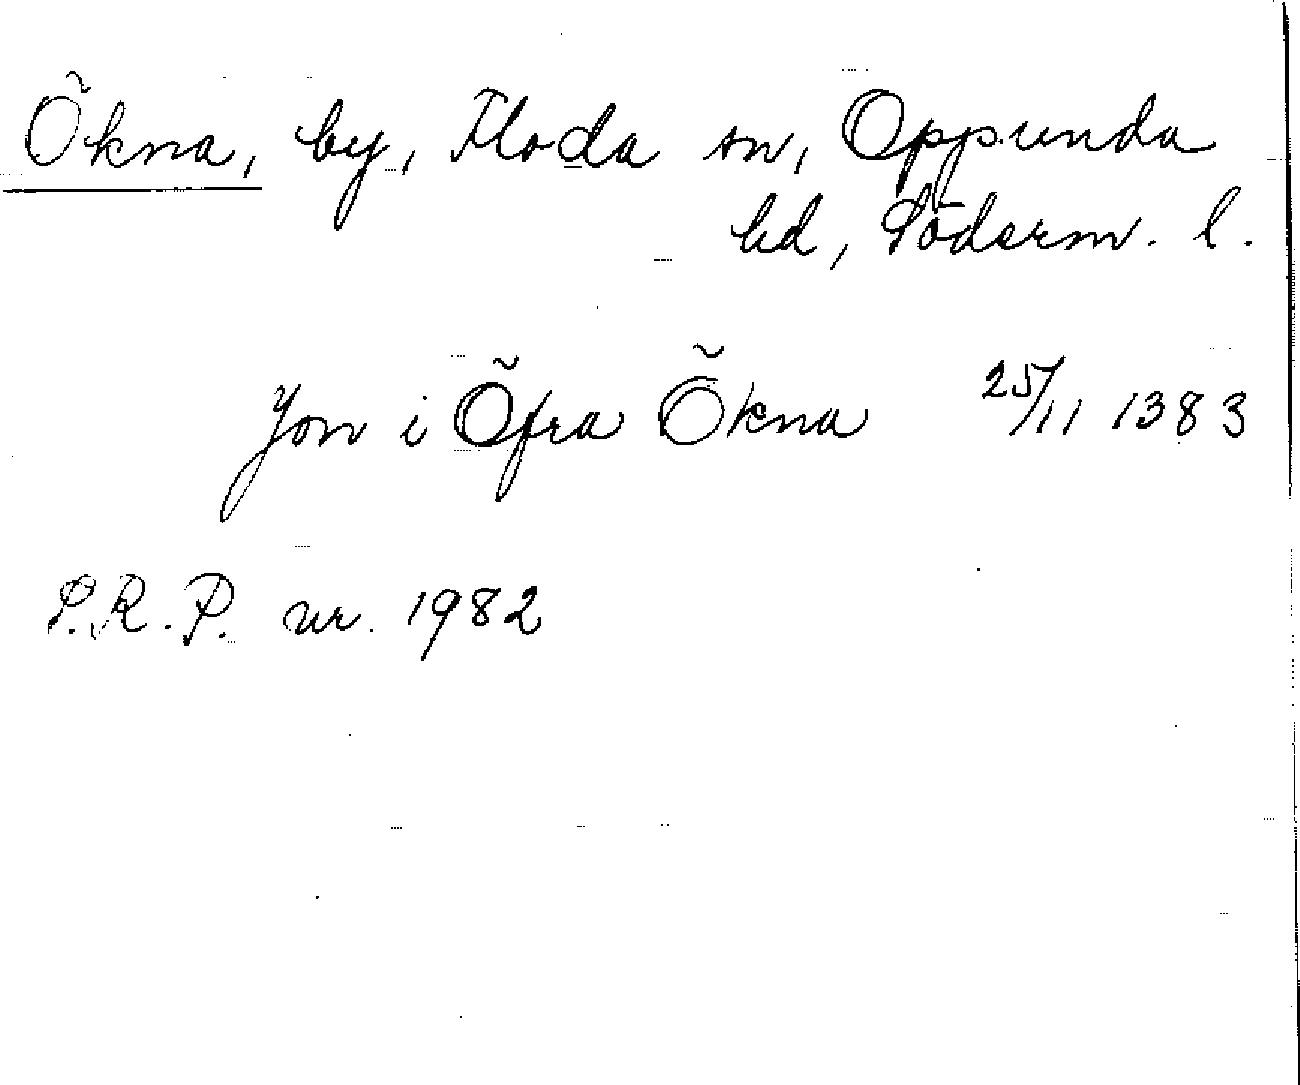 Ökna, by, Floda sn, Oppunda
hd, Söderm. l.
Jon i Öfra Ökna 25/11 1383
S.R.P. nr. 1982